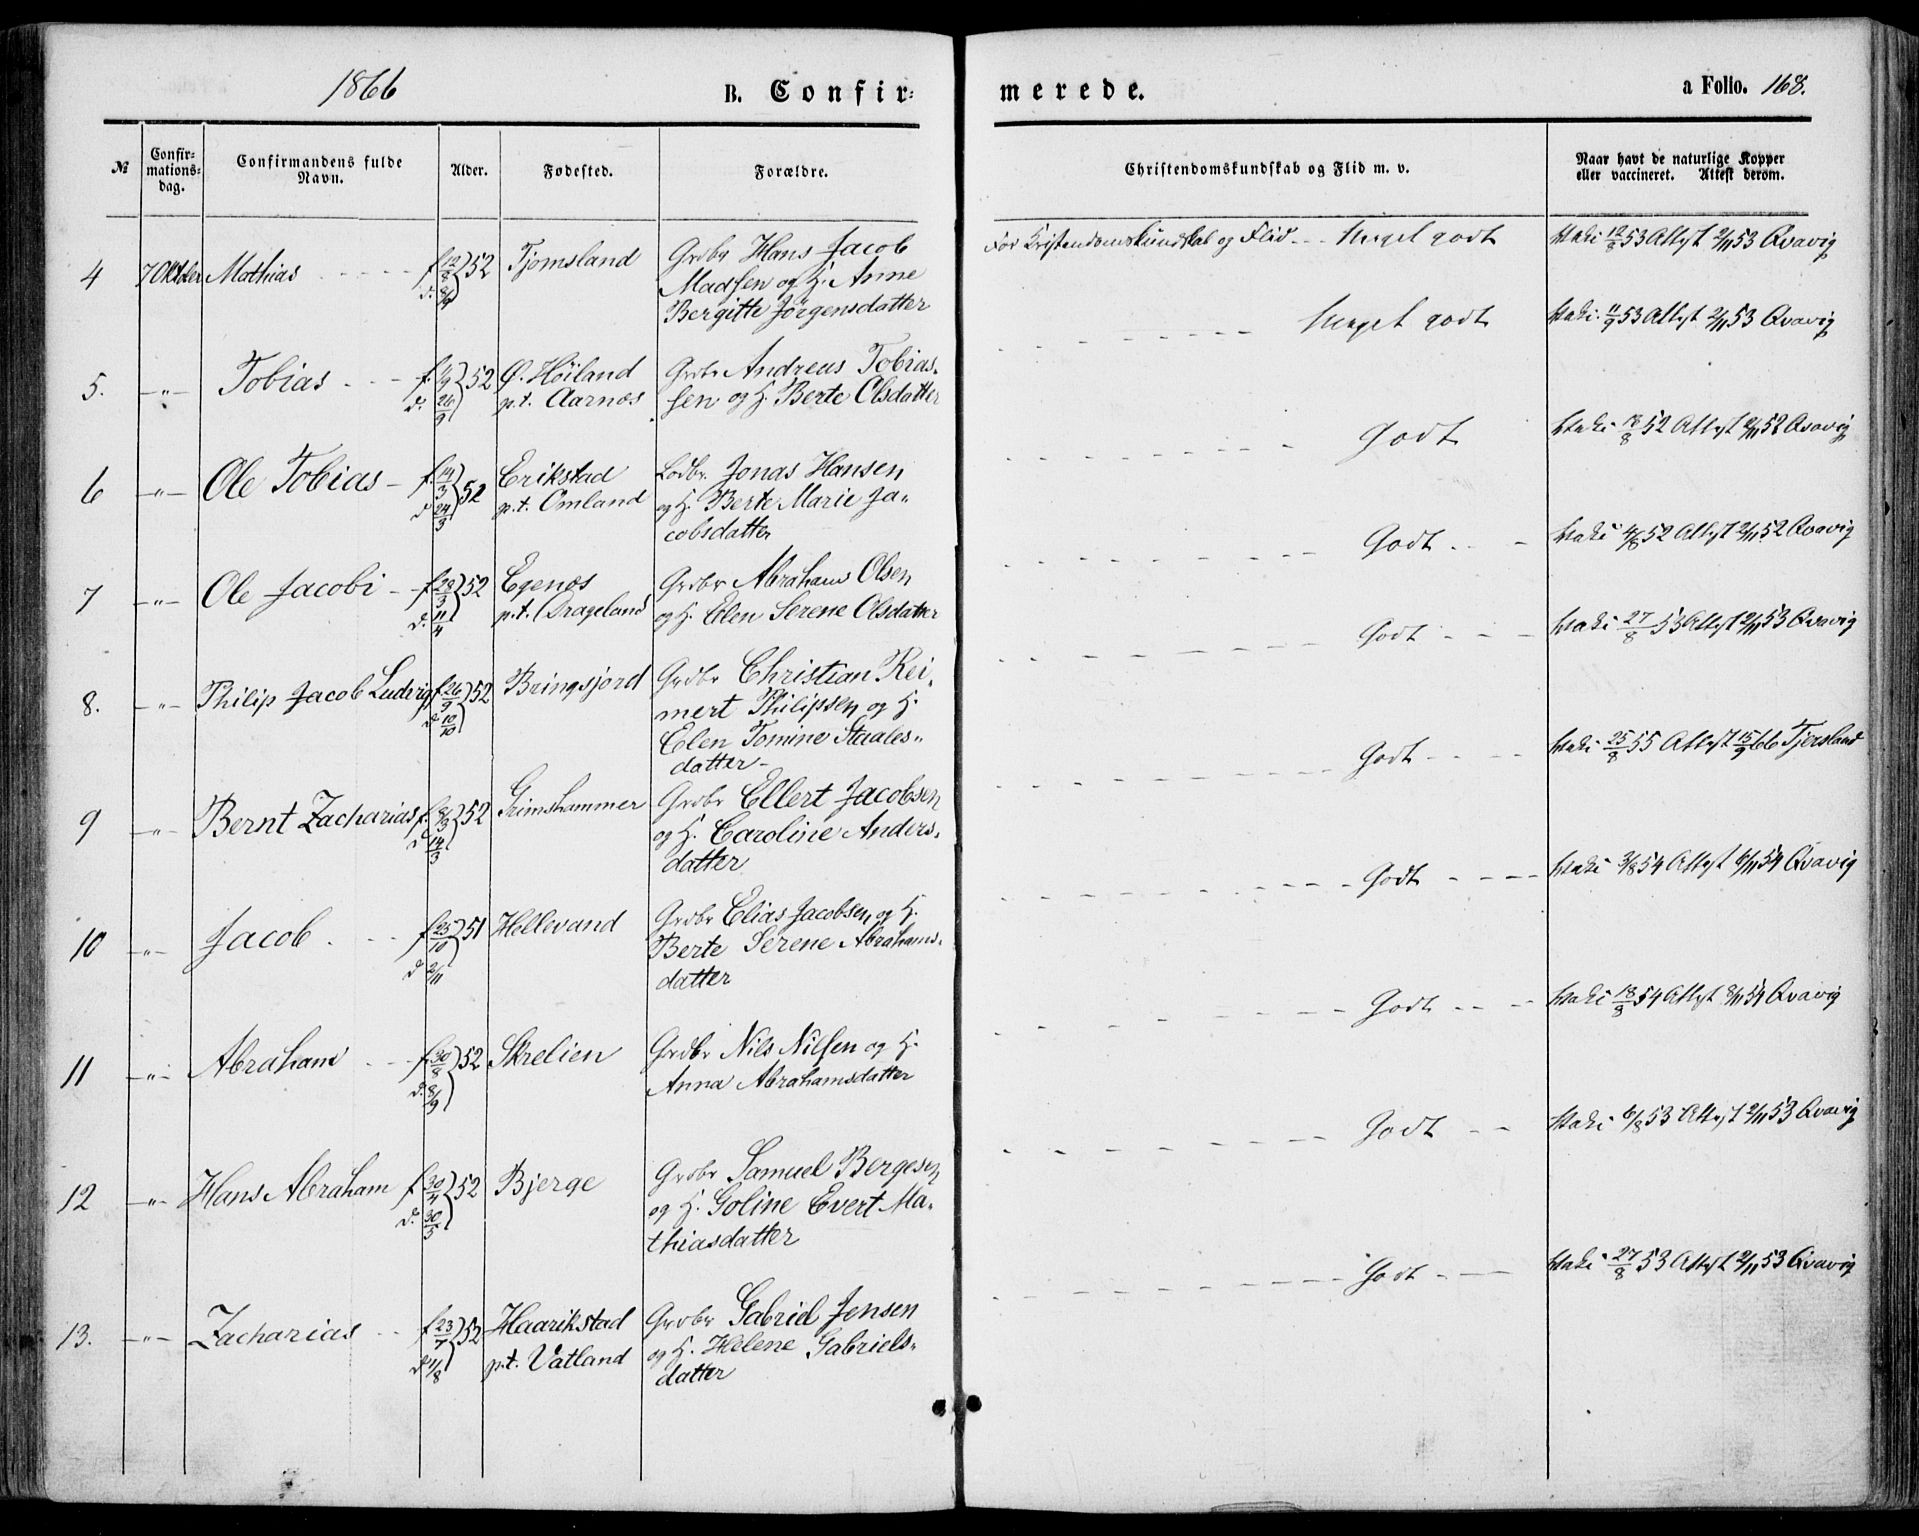 1866 B. Confirmerede. a Folio. 168.
№ Confirmationsdag. Confirmandens fulde Navn. Alder. Fødested. Forældre. Christendomskundskab og Flid m. v. Naar havt de naturlige Kopper eller vaccineret. Attest derom.
4 7 Oktber Mathias f. 12/8 52 Tjomsland Grdbr Hans Jacob
d. 8/9 Madssen og H. Anne
Bergitte Jørgensdatter
For Kristendomskundskab og Flid Meget godt Vak: 12/8 53 Attest 2/11 53 Qvavig
5. -"- Tobias f. 4/9 52 Ø. Høiland Grdbr Andreas Tobias-
d. 26/9 p.t. Aarnæs sen og H. Berte Olsdatter
Meget godt Vak: 11/9 53 Attest 2/11 53 Qvavig
6 -"- Ole Tobias f. 14/3 52 Erikstad Lodbr. Jonas Hansen
d. 24/3 p.t. Omland og H. Berte Marie Ja-
cobsdatter
Godt Vak: 18/8 52 Attest 2/11 52 Qvavig
7 -"- Ole Jacobi f. 28/3 52 Egenæs Grdbr Abraham Olsen
d. 11/4 p.t. Drageland og H. Elen Serene Olsdatter
Godt Vak: 4/8 52 Attest 2/11 52 Qvavig
8. -"- Philip Jacob Ludvig f. 26/9 52 Bringsjord Grdbr Christian Rei-
d. 10/10 mert Philipsen og H.
Elen Tomine Staales-
datter
Godt Vak: 27/8 53 Attest 2/11 53 Qvavig
9 -"- Bernt Zacharias f. 8/3 52 Grimshammer Grdbr Ellert Jacobsen
d. 14/3 og H. Caroline Anders-
datter
Godt Vak: 25/8 55 Attest 15/9 66 Tjersland
10 -"- Jacob f. 25/10 51 Hellevand Grdbr Elias Jacobsen og H.
d. 2/11 Berte Serene Abrahams-
datter
Godt Vak: 3/8 54 Attest 6/11 54 Qvavig
11 -"- Abraham f. 30/8 52 Skrelien Grdbr Nils Nilsen og H.
d. 8/9 Anna Abrahamsdatter
Godt Vak: 18/8 54 Attest 8/11 54 Qvavig
12 -"- Hans Abraham f. 30/4 52 Bjerge Grdbr Samuel Bergesen
d. 30/5 og H. Goline Evert Ma-
thiasdatter
Godt Vak: 6/8 53 Attest 2/11 53 Qvavig
13. -"- Zacharias f. 23/7 52 Haarikstad Grdbr Gabriel Jensen
d. 1/8 p.t. Vatland og H. Helene Gabriels-
datter
Godt Vak: 27/8 53 Attest 2/11 53 Qvavig